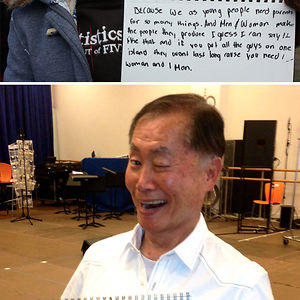 tistics
OUT OF FIV
Because we as young people need parents
for so many things. And Men / Woman make
the people they produce I guess I can say! I
like that and if you put all the guys on one
island they wont last long cause you need 1
woman and 1 Man.